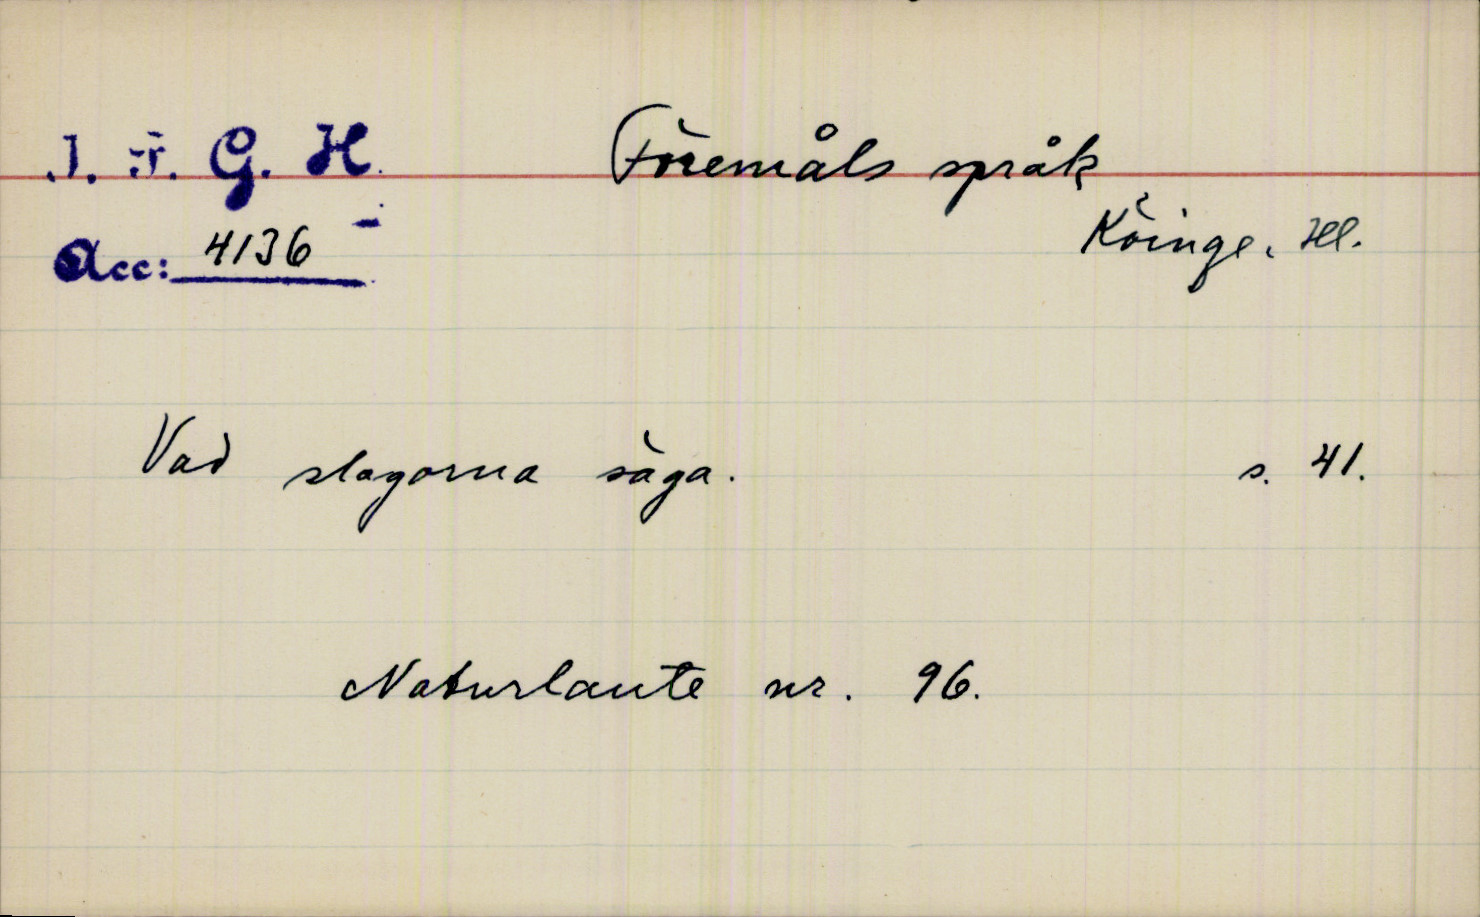 I. F. G. H.
Föremåls språk
Acc: 4136
Köinge. Hl.
Vad slagorna säga. s. 41.
Naturlaute nr. 96.